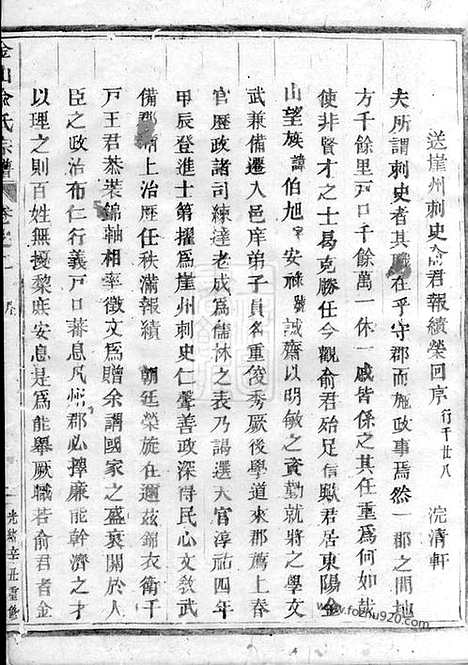 送崖州刺史俞君報績榮回序 行千廿八 浣清軒
夫所謂刺史者其職在乎守郡而施政事焉然一郡之間地
方千餘里戸口千餘萬一休一戚皆係之其任重爲何如哉
使非賢才之士曷克勝任今觀俞君居東陽金
山望族諱伯旭字安祿號誠齋以明敏之資勤就將之學文
武兼備遷入邑庠弟子員名重後秀厥後學道來郡薦上春
官歷政諸司練達老成爲儒林之表乃謁選天官淳祐四年
甲辰登進士第擢爲崖州刺史仁聲善政深得民心文教武
備郡上治歷任秩滿報績 朝廷榮旋在邇茲錦衣衛千
戸王君恭裝錦軸相率徵文爲贈余謂國家之盛衰關於人
臣之政治布仁行義戸口蕃息凡州郡必擇廉能幹濟之才
以理之則百姓無擾黎庶安息是爲能舉厥職若俞君者金
金山俞氏宗譜
卷之
序
光緒辛丑重修
www.fozhu920.com